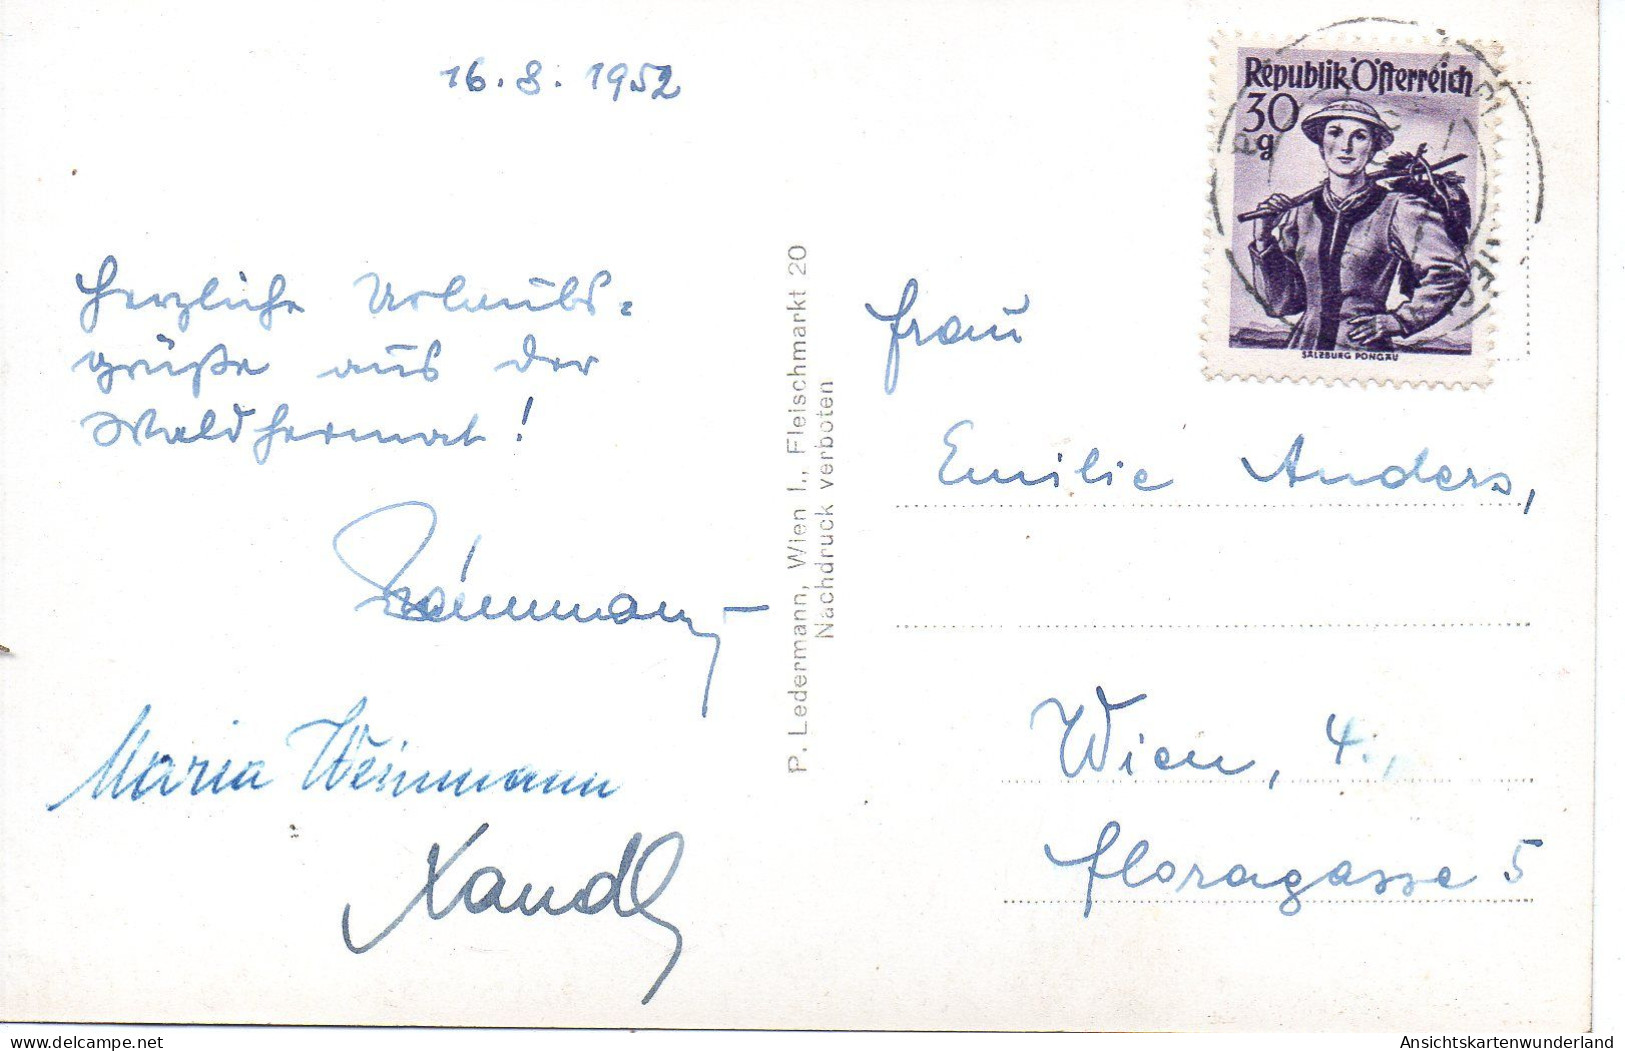 16.8.1952
Herzliche Urlaubs=
grüße aus der
Waldheimat!
Maria Weinmann
Xandl
P. Ledermann, Wien I., Fleischmarkt 20
Nachdruck verboten
Republik Österreich
30
g
SALZBURG PONGAU
Frau
Emilie Anders,
Wien, 4.,
Floragasse 5
delcampe.net
Ansichtskartenwunderland